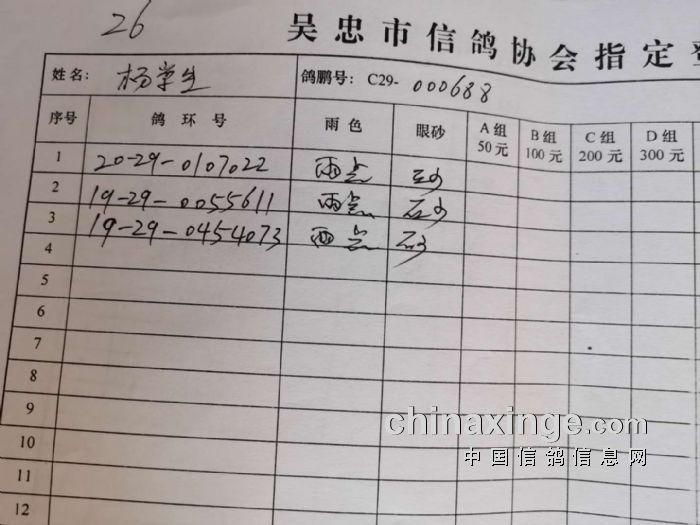 26
吴忠市信鸽协会指定
姓名: 杨学生 鸽鹏号: C29- 000688
序号 鸽环号 雨色 眼砂 A组 50元 B组 100元 C组 200元 D组 300元
1 20-29-0107022 雨点 砂
2 19-29-0055611 雨点 砂
3 19-29-0454073 雨点 砂
4
5
6
7
8
9
10
11
12
chinaxinge.com
中国信鸽信息网